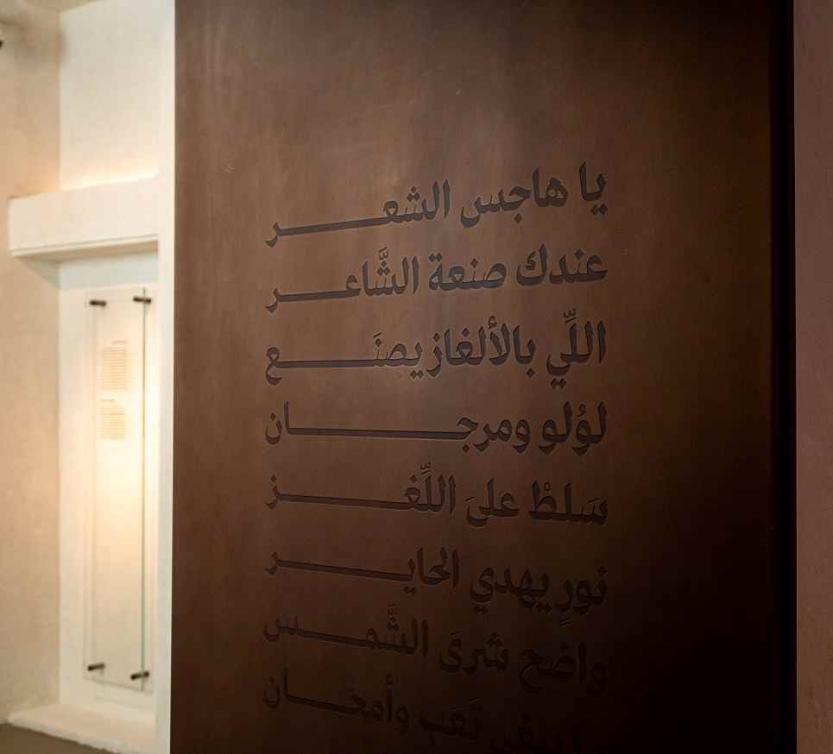 يا هاجس الشعر
عندك صنعة الشَّاعر
اللِّي بالألغاز يصنَع
لوُلو ومرجان
سَلطْ علىَ اللِّغز
نورٍ يهدي الحاير
واضح شرىَ الشَّمس
تَعَب وأمحَان